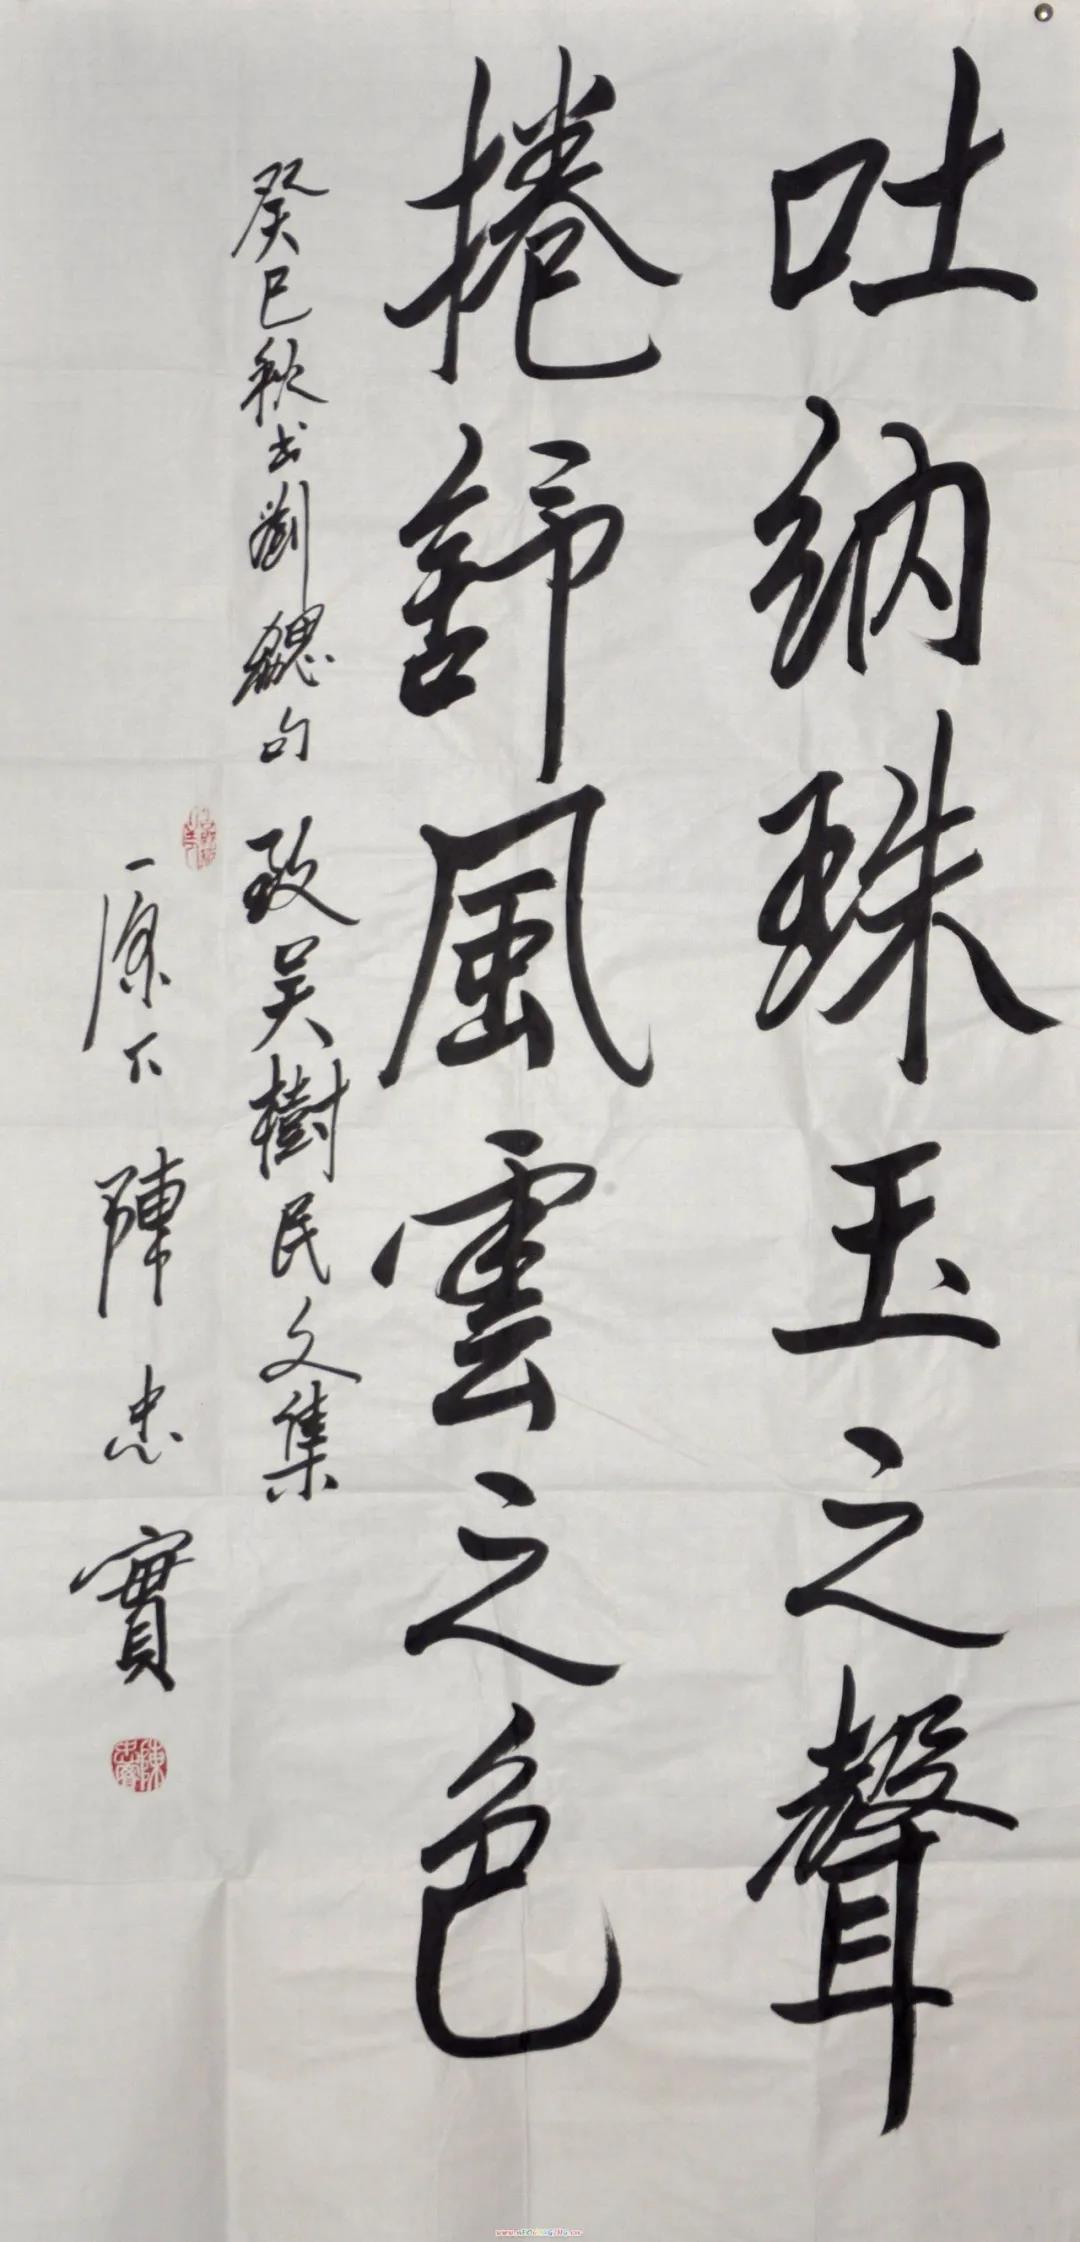 吐納珠玉之聲
捲舒風雲之色
癸巳秋书劉勰句 致吴樹民文集
原下 陳忠實
陳忠實